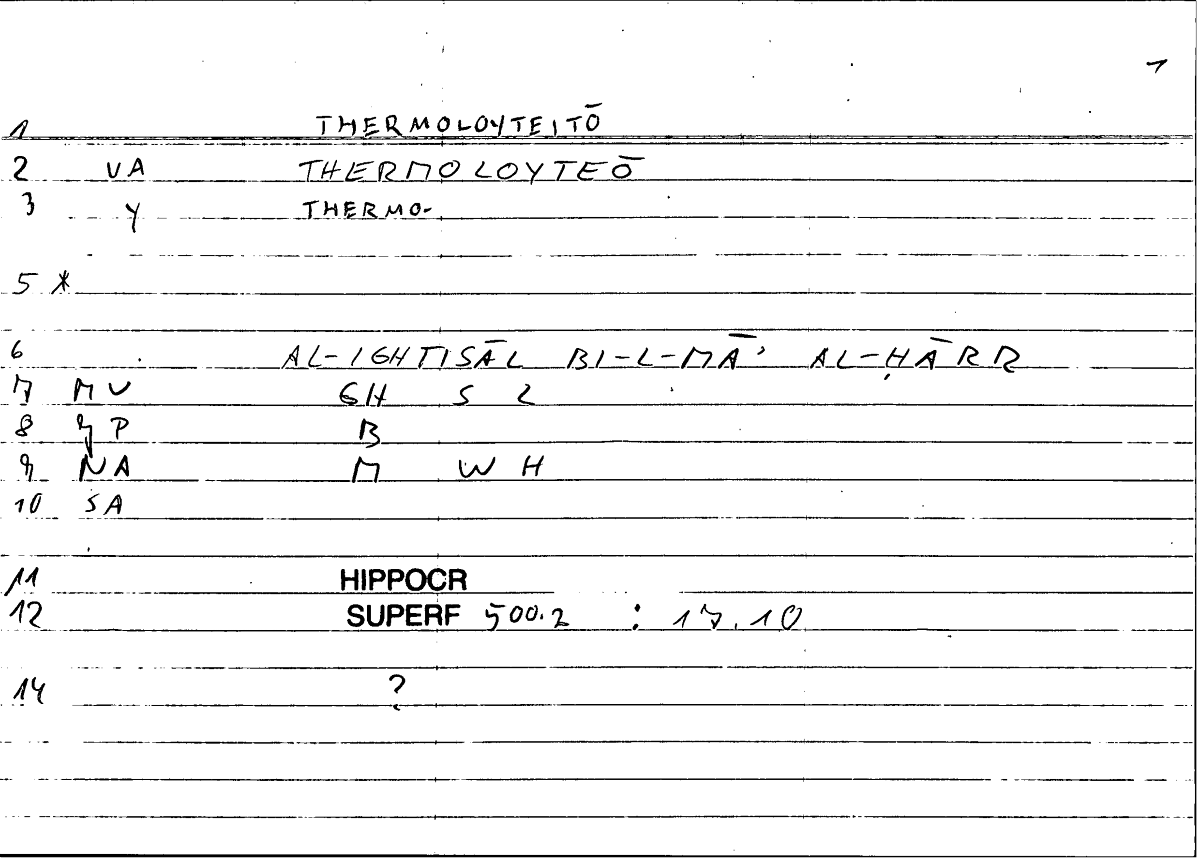 1
1 THERMOLOYTEITŌ
2 VA THERMOLOYTEŌ
3 Y THERMO-
5 *
6 AL-IGHTISĀL BI-L-MĀ' AL-ḤĀRR
7 MV GH S L
8 P B
9 NA M W H
10 SA
11 HIPPOCR
12 SUPERF 500.2 : 17.10
14 ?